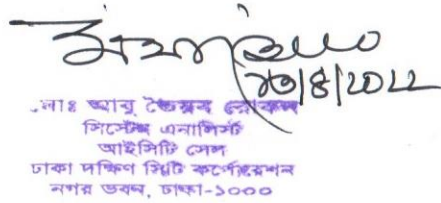 ২৩/৪/২০২২
মোঃ আবু তৈয়ব রোকন
সিস্টেম এনালিস্ট
আইসিটি সেল
ঢাকা দক্ষিণ সিটি কর্পোরেশন
নগর ভবন, ঢাকা-১০০০